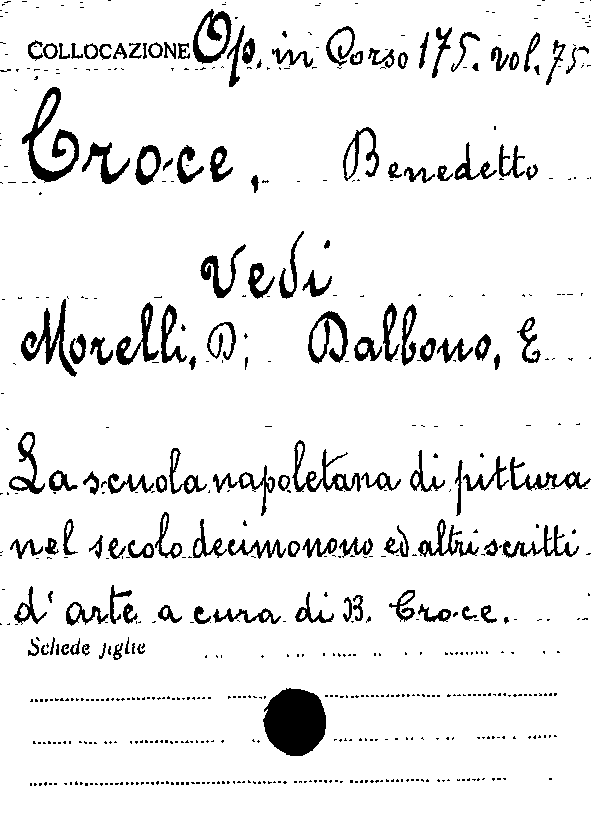 COLLOCAZIONE Op. in Corso 175. vol. 75
Croce, Benedetto
Vedi
Morelli, D; Dalbono, E
La scuola napoletana di pittura
nel secolo decimonono ed altri scritti
d' arte a cura di B. Croce.
Schede figlie